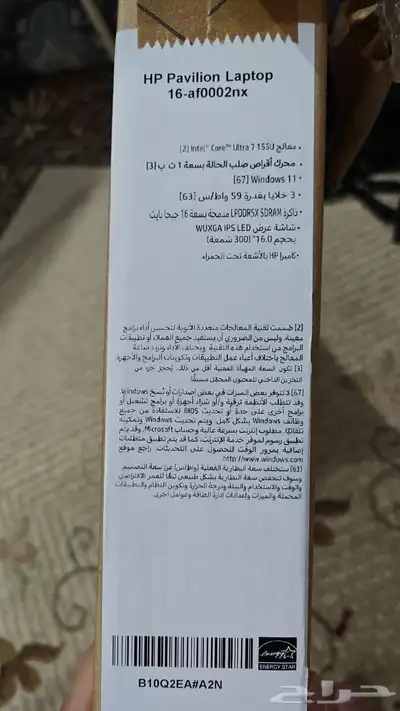 HP Pavilion Laptop
16-af0002nx
• معالج Intel® Core™ Ultra 7 155U [2]
• محرك أقراص صلب الحالة بسعة 1 ت ب [3]
• Windows 11 [67]
• 3 خلايا بقدرة 59 واط/س [63]
• ذاكرة LPDDR5X SDRAM مدمجة بسعة 16 جيجا بايت
• شاشة عرض WUXGA IPS LED
بحجم 16.0" (300 شمعة)
• كاميرا HP بالأشعة تحت الحمراء.
[2] صُممت تقنية المعالجات متعددة الأنوية لتحسين أداء برامج
معينة. وليس من الضروري أن يستفيد جميع العملاء أو تطبيقات
البرامج من استخدام هذه التقنية. ويختلف الأداء وتردد ساعة
المعالج باختلاف أعباء عمل التطبيقات وتكوينات البرامج والأجهزة
[3] تكون السعة المهيأة الفعلية أقل من ذلك. يُحجز جزء من
التخزين الداخلي للمحتوى المحمل مسبقًا.
[67] لا تتوفر بعض الميزات في بعض إصدارات أو نُسخ Windows.
وقد تتطلب الأنظمة ترقية و/أو شراء أجهزة أو برامج تشغيل أو
برامج أخرى على حدة أو تحديث BIOS للاستفادة من جميع
وظائف Windows بشكل كامل. ويتم تحديث Windows وتمكينه
تلقائيًا. مطلوب إنترنت بسرعة عالية وحساب Microsoft. وقد يتم
تطبيق رسوم لموفر خدمة الإنترنت، كما قد يتم تطبيق متطلبات
إضافية بمرور الوقت للحصول على التحديثات. راجع موقع
http://www.windows.com.
[63] ستختلف سعة البطارية الفعلية (واط/س) عن سعة التصميم.
وسوف تنخفض سعة البطارية بشكل طبيعي تبعًا للعمر الافتراضي
والوقت والاستخدام والبيئة ودرجة الحرارة وتكوين النظام والتطبيقات
المحملة والميزات وإعدادات إدارة الطاقة وعوامل أخرى
energy
ENERGY STAR
B10Q2EA#A2N
حراج